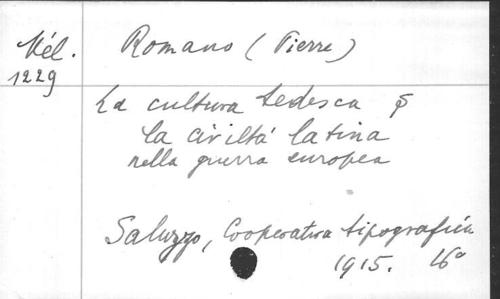 Mél.
1229
Romano (Pierre)
La cultura tedesca e
la civiltà latina
nella guerra europea
Saluzzo, Cooperativa tipografica
1915. 16°